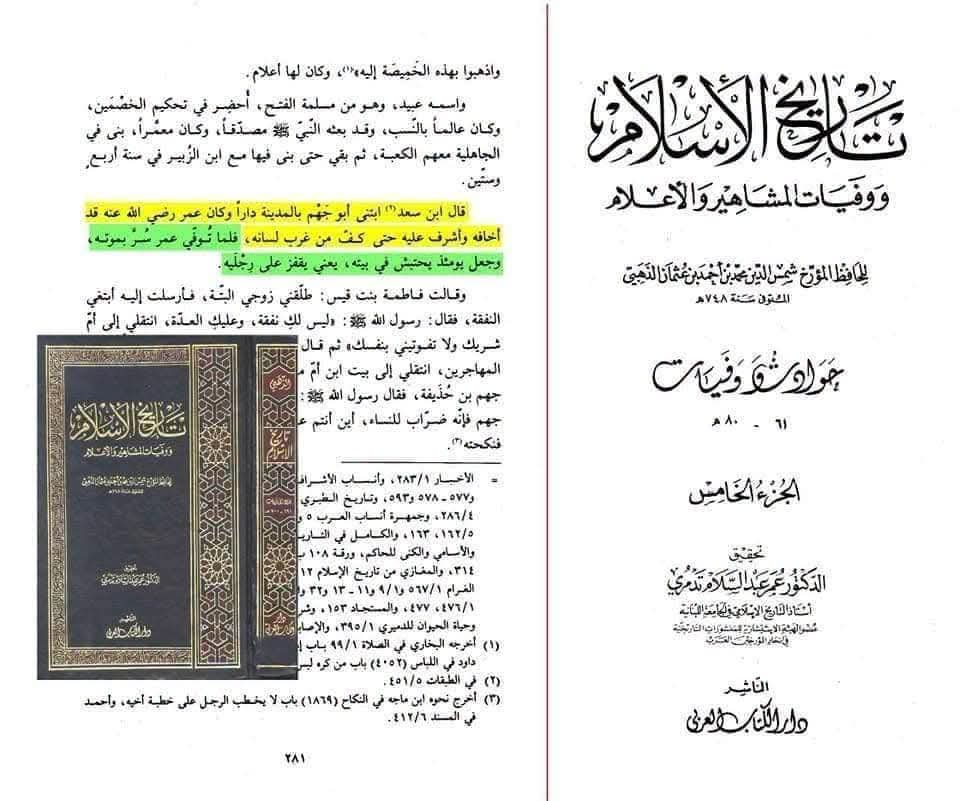 واذهبوا بهذه الخَمِيصَة إليه»(١)، وكان لها أعلام.
واسمه عبيد، وهو من مسلمة الفتح، أُحضِر في تحكيم الخصْمَين،
وكان عالماً بالنّسب، وقد بعثه النّبيّ ﷺ مصدّقاً، وكان معمّراً، بنى في
الجاهلية معهم الكعبة، ثم بقي حتى بنى فيها مع ابن الزُبير في سنة أربع
وستّين.
قال ابن سعد(٢) ابتنى أبو جَهْم بالمدينة داراً وكان عمر رضي الله عنه قد
أخافه وأشرف عليه حتى كفّ من غرب لسانه، فلما تُوفّي عمر سُرَّ بموته،
وجعل يومئذ يحتبش في بيته، يعني يقفز على رِجْلَيه.
وقالت فاطمة بنت قيس: طلّقني زوجي البتّة، فأرسلت إليه أبتغي
النفقة، فقال: رسول الله ﷺ: «ليس لكِ نفقة، وعليكِ العدّة، انتقلي إلى أمّ
شريك ولا تفوتيني بنفسك» ثم قال
المهاجرين، انتقلي إلى بيت ابن أمّ
جهم بن حُذَيفة، فقال رسول الله ﷺ:
جهم فإنّه ضرّاب للنساء، أين أنتم
فنكحته(٣).
= الأخبار ٢٨٣/١، وأنساب الأشراف
و٥٧٧ ـ ٥٧٨ و٥٩٣، وتاريخ الطبري
٢٨٦/٤، وجمهرة أنساب العرب ٥
١٦٢/٥، ١٦٣، والكامل في التاريخ
والأسامي والكنى للحاكم، ورقة ١٠٨
٣١٤، والمغازي من تاريخ الإسلام ١٢
الغرام ٥٦٧/١ و٩/١ ـ ١١ ـ ١٣ و٣٢
٤٧٦/١، ٤٧٧، والمستجاد ١٥٣،
وحياة الحيوان للدميري ٣٩٥/١،
(١) أخرجه البخاري في الصلاة ٩٩/١ باب
داود في اللباس (٤٠٥٢) باب من كره
(٢) في الطبقات ٤٥١/٥.
(٣) أخرج نحوه ابن ماجه في النكاح (١٨٦٩) باب لا يخطب الرجل على خطبة أخيه، وأحمد
في المسند ٤١٢/٦.
٢٨١
تاريخ الإسلام
ووفيات المشاهير والأعلام
لحافظ المؤرخ شمس الدين محمد بن أحمد بن عثمان الذهبي
تحقيق
الدكتور عمر عبد السلام تدمري
الناشر
دار الكتاب العربي
الذهبي
تاريخ الإسلام
تاريخ الإسلام
ووفيات المشاهير والأعلام
لحافظ المؤرخ شمس الدين محمد بن أحمد بن عثمان الذهبي
المتوفى سنة ٧٤٨ هـ
حوادث ووفيات
٦١ - ٨٠ هـ
الجزء الخامس
تحقيق
الدكتور عمر عبد السلام تدمري
أستاذ التاريخ الإسلامي في الجامعة اللبنانية
عضو الهيئة الاستشارية للمنشورات التاريخية
في اتحاد المؤرخين العرب
الناشر
دار الكتاب العربي